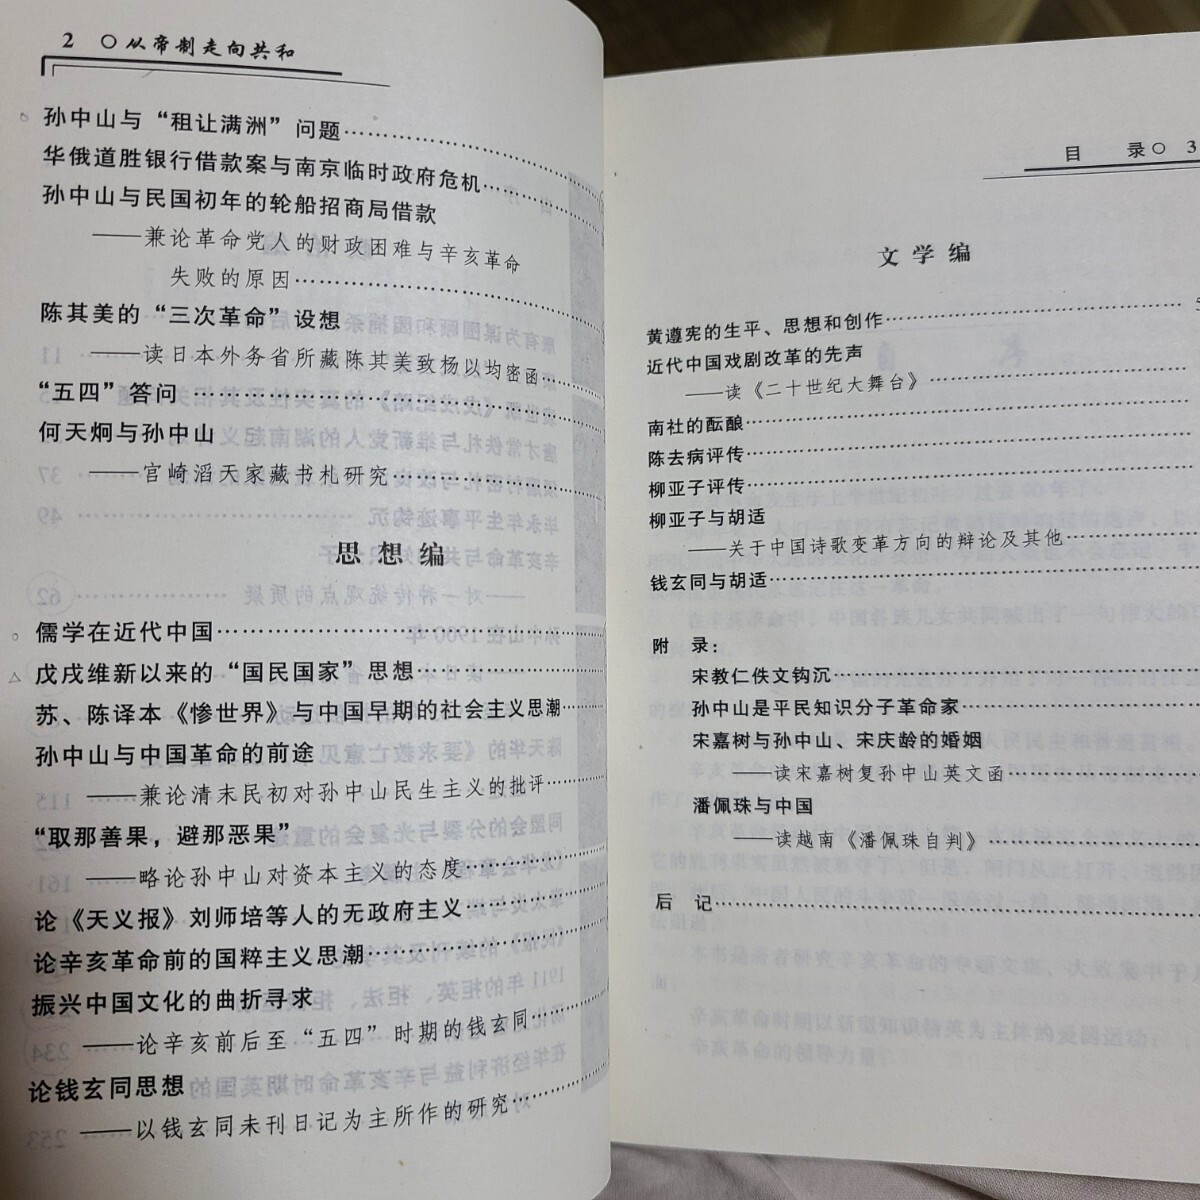 2 ○从帝制走向共和
孙中山与“租让满洲”问题
华俄道胜银行借款案与南京临时政府危机
孙中山与民国初年的轮船招商局借款
——兼论革命党人的财政困难与辛亥革命
失败的原因
陈其美的“三次革命”设想
——读日本外务省所藏陈其美致杨以均密函
“五四”答问
何天炯与孙中山
——宫崎滔天家藏书札研究
思想编
儒学在近代中国
戊戌维新以来的“国民国家”思想
苏、陈译本《惨世界》与中国早期的社会主义思潮
孙中山与中国革命的前途
——兼论清末民初对孙中山民生主义的批评
“取那善果，避那恶果”
——略论孙中山对资本主义的态度
论《天义报》刘师培等人的无政府主义
论辛亥革命前的国粹主义思潮
振兴中国文化的曲折寻求
——论辛亥前后至“五四”时期的钱玄同
论钱玄同思想
——以钱玄同未刊日记为主所作的研究
目 录○ 3
文学编
黄遵宪的生平、思想和创作
近代中国戏剧改革的先声
——读《二十世纪大舞台》
南社的酝酿
陈去病评传
柳亚子评传
柳亚子与胡适
——关于中国诗歌变革方向的辩论及其他
钱玄同与胡适
附 录：
宋教仁佚文钩沉
孙中山是平民知识分子革命家
宋嘉树与孙中山、宋庆龄的婚姻
——读宋嘉树复孙中山英文函
潘佩珠与中国
——读越南《潘佩珠自判》
后 记